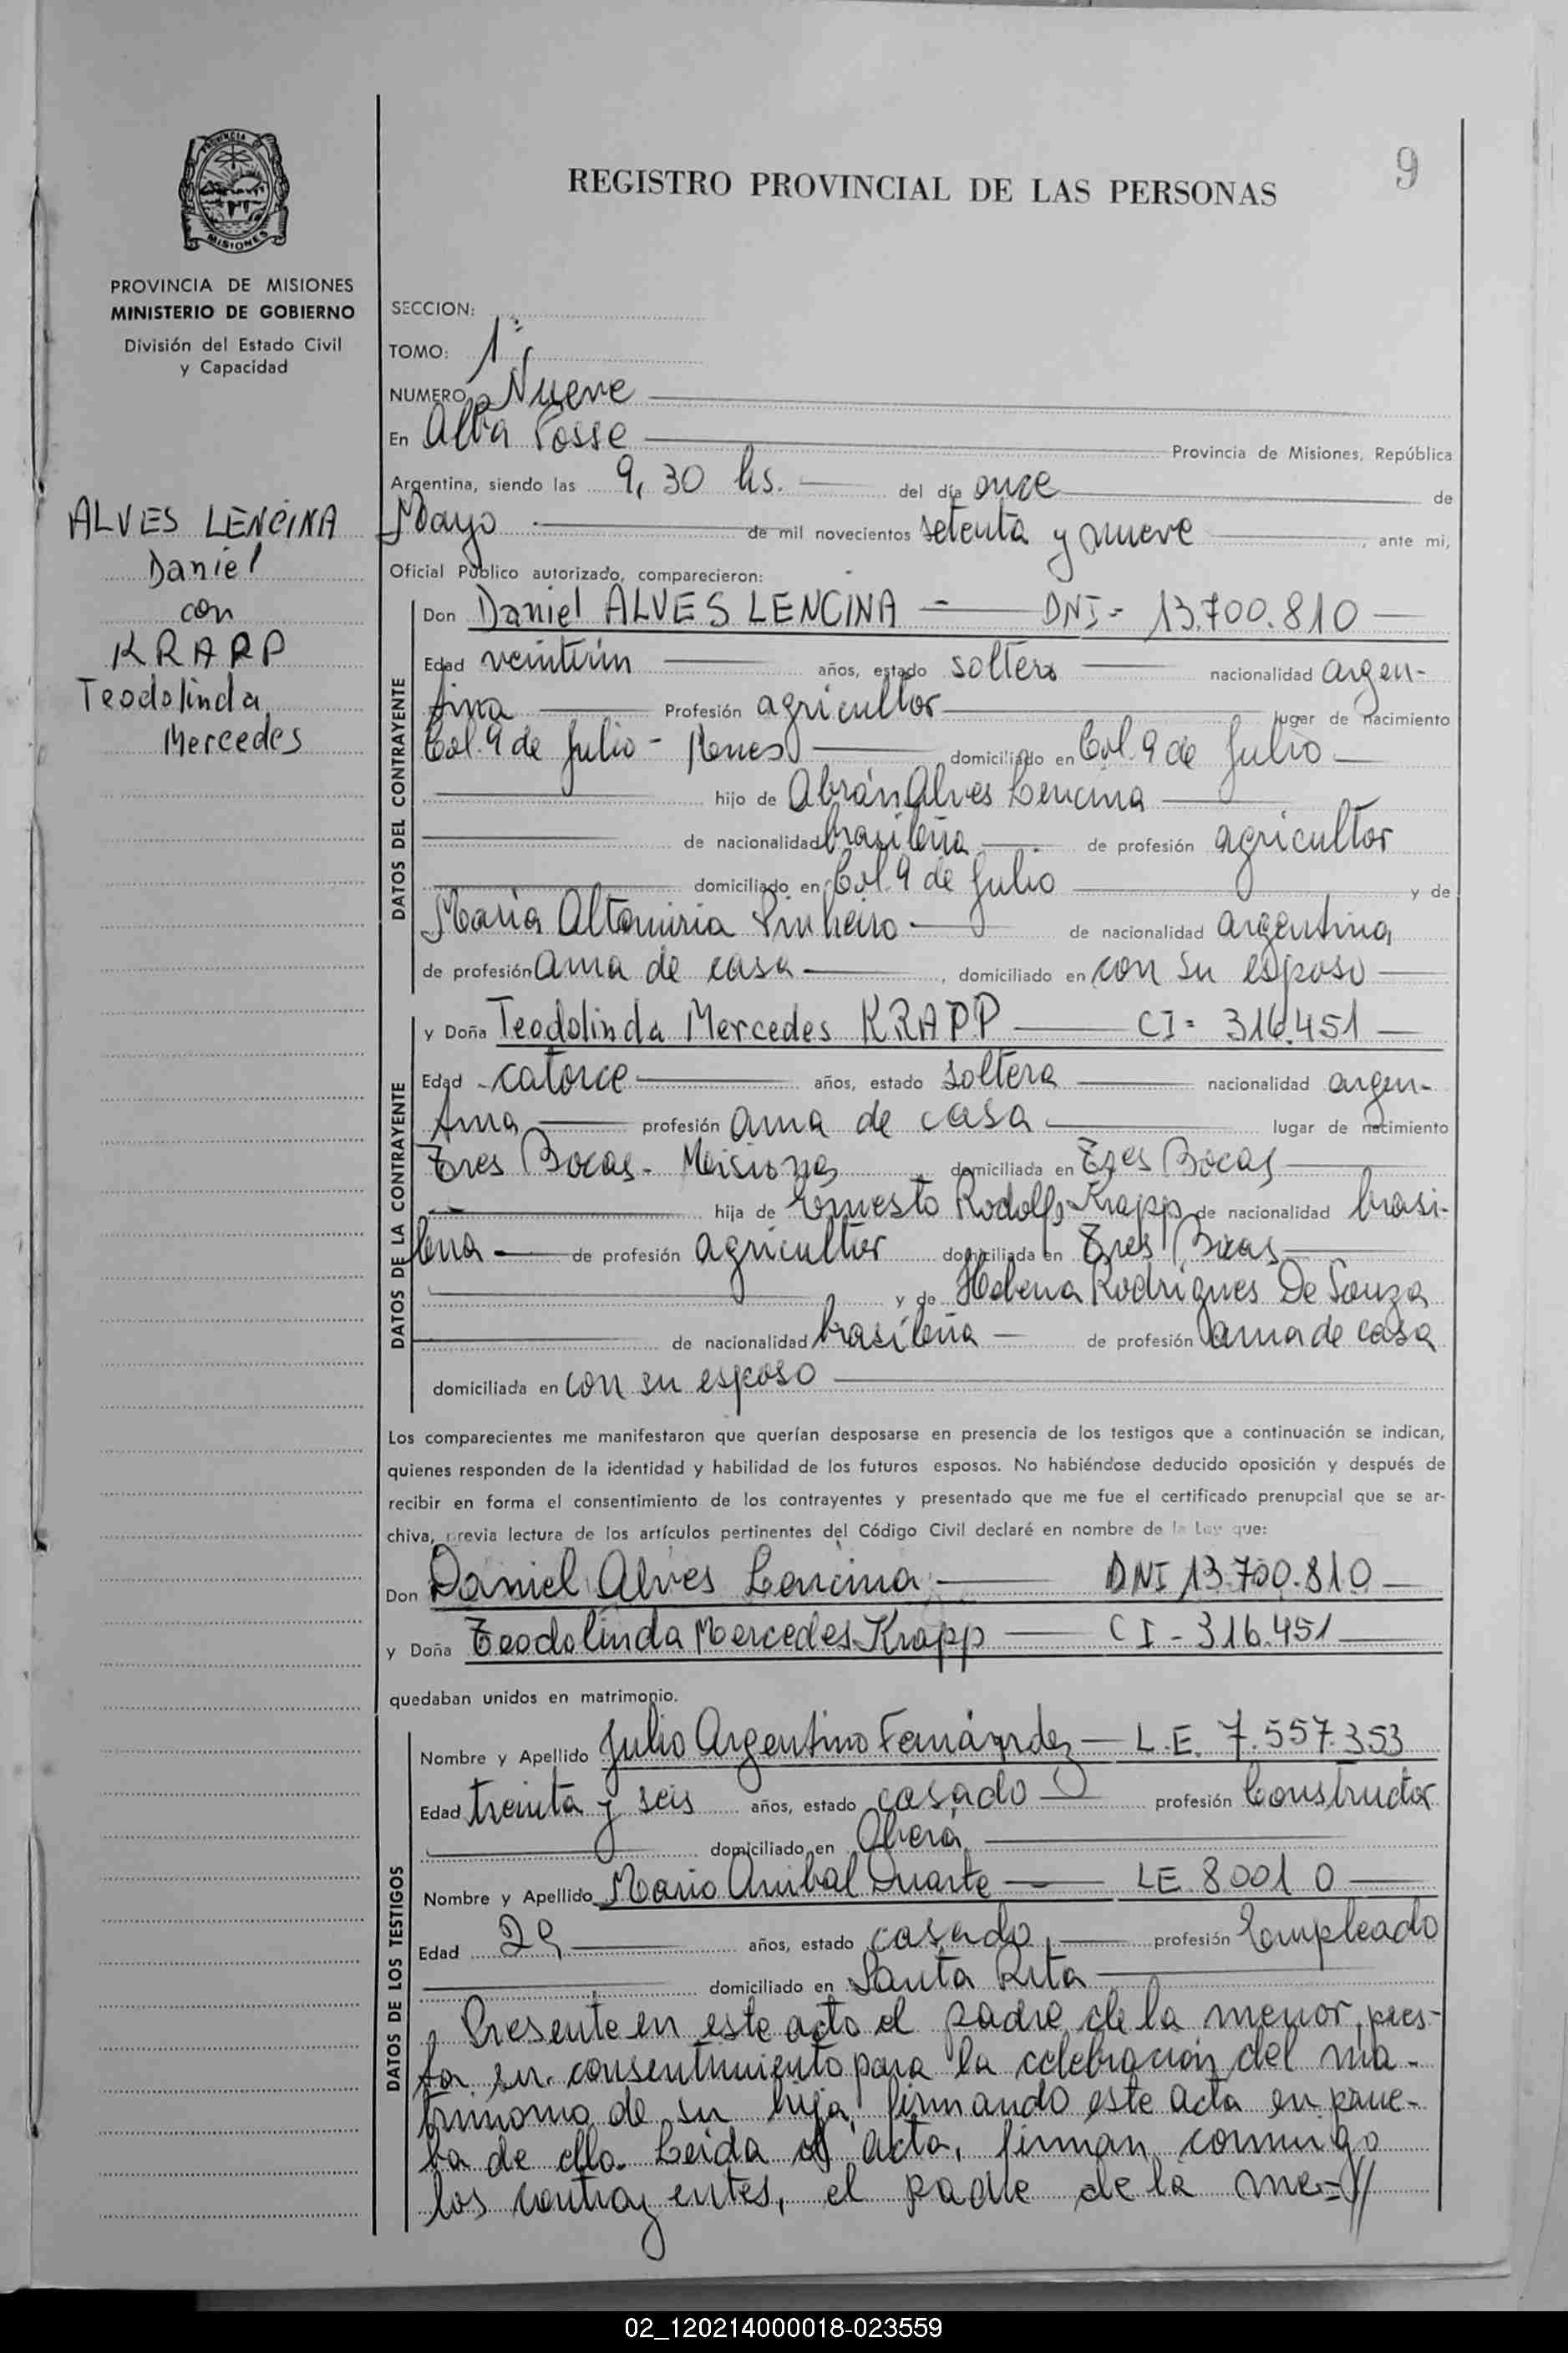 9
REGISTRO PROVINCIAL DE LAS PERSONAS
PROVINCIA DE MISIONES
PROVINCIA DE MISIONES
MINISTERIO DE GOBIERNO
División del Estado Civil
y Capacidad
ALVES LENCINA
Daniel
con
KRAPP
Teodolinda
Mercedes
SECCION:
TOMO: 1º
NUMERO Nueve
En Alba Posse Provincia de Misiones, República
Argentina, siendo las 9,30 hs. del día once de
Mayo de mil novecientos setenta y nueve, ante mi,
Oficial Público autorizado, comparecieron:
DATOS DEL CONTRAYENTE
Don Daniel ALVES LENCINA - DNI- 13.700.810
Edad veintiún años, estado soltero nacionalidad argen-
tina Profesión agricultor lugar de nacimiento
Col. 9 de Julio - domiciliado en Col. 9 de Julio
hijo de Abrán Alves Lencina
de nacionalidad brasileña de profesión agricultor
domiciliado en Col. 9 de Julio y de
María Altamiria Pinheiro de nacionalidad argentina
de profesión ama de casa, domiciliado en con su esposo
DATOS DE LA CONTRAYENTE
y Doña Teodolinda Mercedes KRAPP CI- 316.451
Edad catorce años, estado soltera nacionalidad argen-
tina profesión ama de casa lugar de nacimiento
Tres Bocas - Misiones domiciliada en Tres Bocas
hija de Ernesto Rodolfo Krapp de nacionalidad brasi-
leña de profesión agricultor domiciliada en Tres Bocas
y de Helena Rodrigues De Souza
de nacionalidad brasileña de profesión ama de casa
domiciliada en con su esposo
Los comparecientes me manifestaron que querían desposarse en presencia de los testigos que a continuación se indican,
quienes responden de la identidad y habilidad de los futuros esposos. No habiéndose deducido oposición y después de
recibir en forma el consentimiento de los contrayentes y presentado que me fue el certificado prenupcial que se ar-
chiva, previa lectura de los artículos pertinentes del Código Civil declaré en nombre de la Ley que:
Don Daniel Alves Lencina DNI 13.700.810
y Doña Teodolinda Mercedes Krapp CI - 316.451
quedaban unidos en matrimonio.
DATOS DE LOS TESTIGOS
Nombre y Apellido Julio Argentino Fernández L.E. 7.557.353
Edad treinta y seis años, estado casado profesión Constructor
domiciliado en Oberá
Nombre y Apellido Mario Anibal Duarte LE 8001 0
Edad 29 años, estado casado profesión Empleado
domiciliado en Santa Rita
Presente en este acto el padre de la menor, pres-
ta su consentimiento para la celebración del ma-
trimonio de su hija, firmando este acta en prue-
ba de ello. Leida el acta, firman conmigo
los contrayentes, el padre de la me=//
02_120214000018-023559